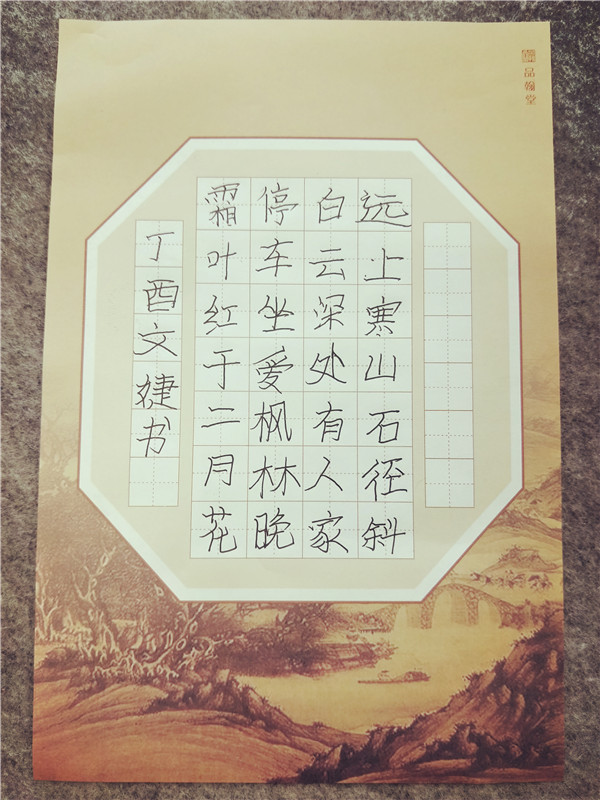 品翰堂
远上寒山石径斜
白云深处有人家
停车坐爱枫林晚
霜叶红于二月花
丁酉文婕书